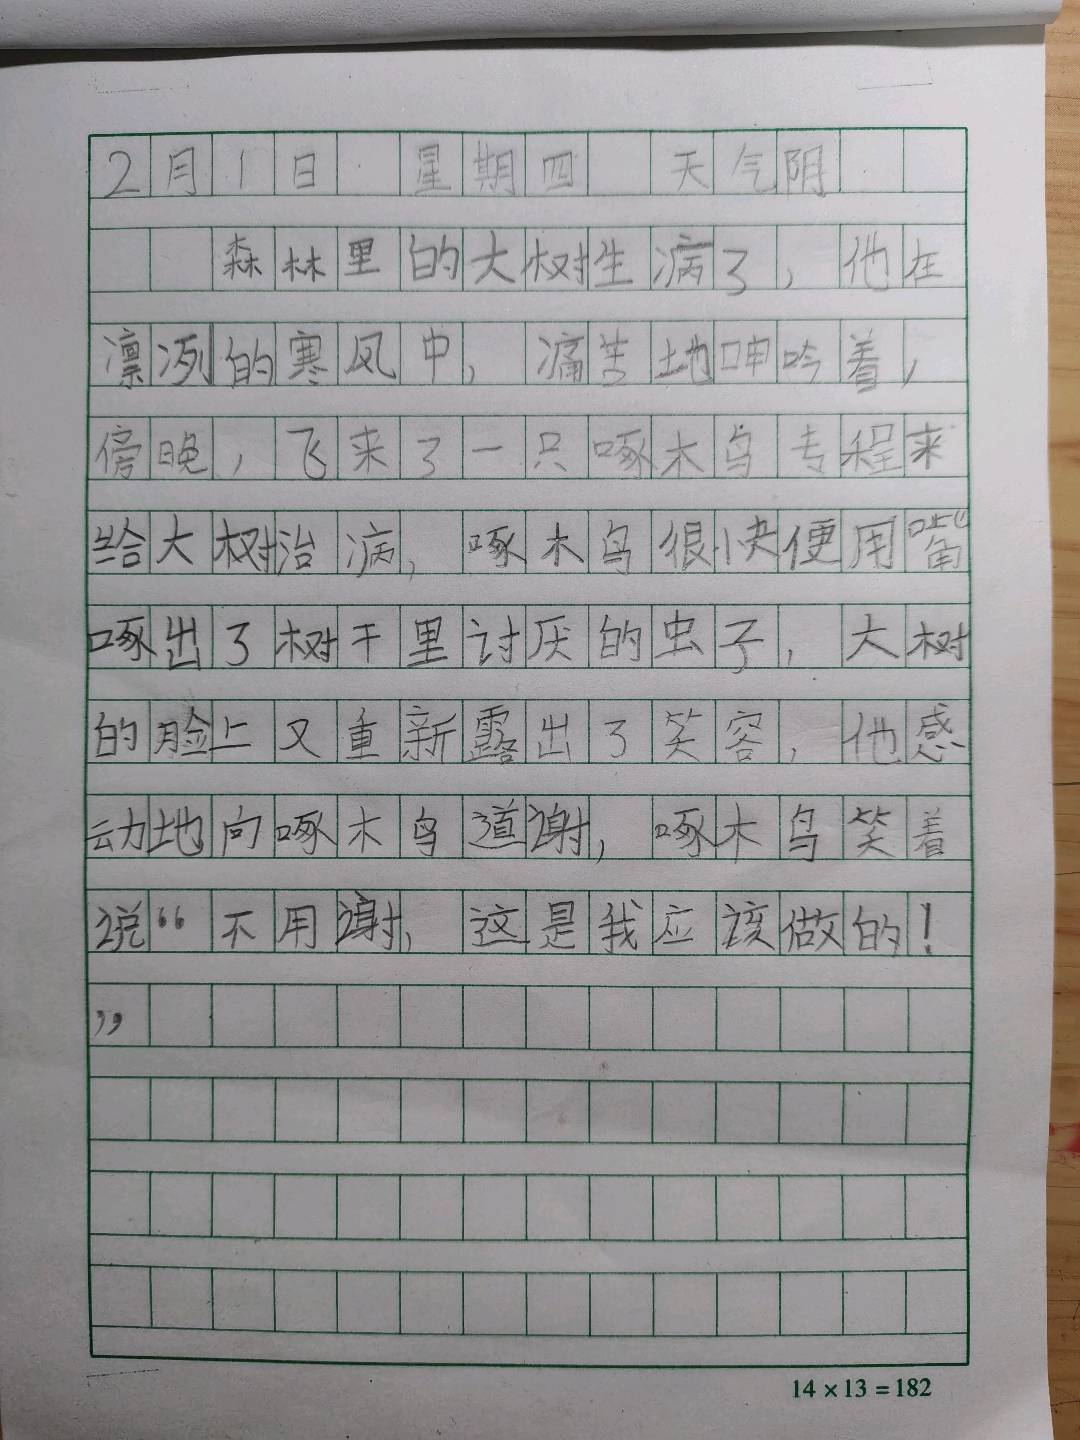 2月1日 星期四 天气阴
森林里的大树生病了，他在
凛冽的寒风中，痛苦地呻吟着，
傍晚，飞来了一只啄木鸟专程来
给大树治病，啄木鸟很快便用嘴
啄出了树干里讨厌的虫子，大树
的脸上又重新露出了笑容，他感
动地向啄木鸟道谢，啄木鸟笑着
说“不用谢，这是我应该做的！
”
14×13=182